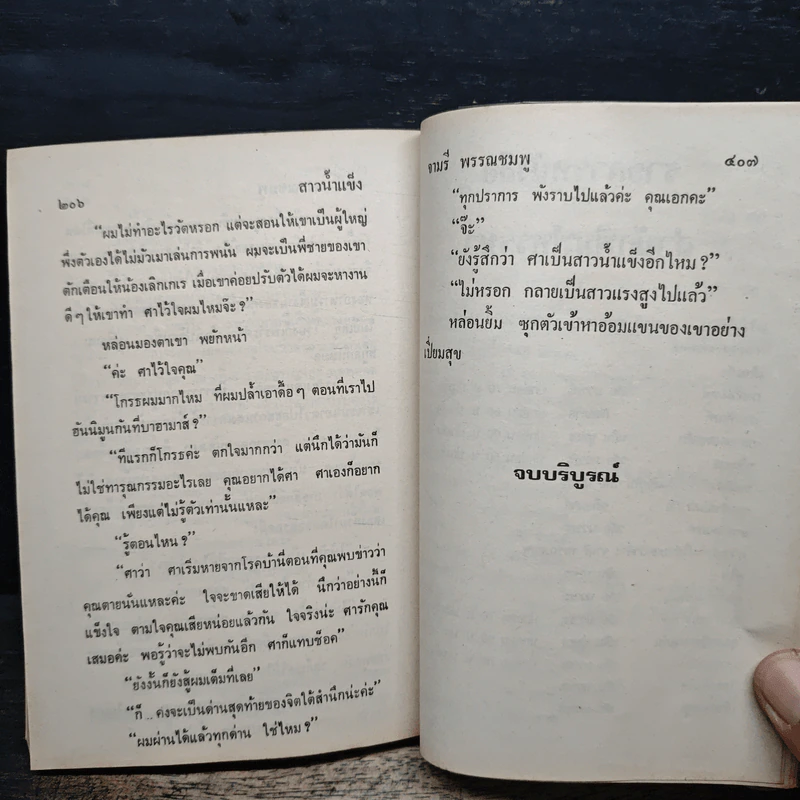 ๒๐๖
สาวน้ำแข็ง
“ผมไม่ทำอะไรวัตหรอก แต่จะสอนให้เขาเป็นผู้ใหญ่
พึ่งตัวเองได้ไม่มัวเมาเล่นการพนัน ผมจะเป็นพี่ชายของเขา
ตักเตือนให้น้องเลิกเกเร เมื่อเขาค่อยปรับตัวได้ผมจะหางาน
ดีๆ ให้เขาทำ ศาไว้ใจผมไหมจ๊ะ?”
หล่อนมองตาเขา พยักหน้า
“ค่ะ ศาไว้ใจคุณ”
“โกรธผมมากไหม ที่ผมปล้ำเอาดื้อๆ ตอนที่เราไป
ฮันนิมูนกันที่บาฮามาส์?”
“ทีแรกก็โกรธค่ะ ตกใจมากกว่า แต่นึกได้ว่ามันก็
ไม่ใช่ทารุณกรรมอะไรเลย คุณอยากได้ศา ศาเองก็อยาก
ได้คุณ เพียงแต่ไม่รู้ตัวเท่านั้นแหละ”
“รู้ตอนไหน?”
“ศาว่า ศาเริ่มหายจากโรคบ้านี่ตอนที่คุณพบข่าวว่า
คุณตายนั่นแหละค่ะ ใจจะขาดเสียให้ได้ นึกว่าอย่างนี้ก็
แข็งใจ ตามใจคุณเสียหน่อยแล้วกัน ใจจริงน่ะ ศารักคุณ
เสมอค่ะ พอรู้ว่าจะไม่พบกันอีก ศาก็แทบช็อค”
“ยังงั้นก็ยังสู้ผมเต็มที่เลย”
“ก็ .. คงจะเป็นด่านสุดท้ายของจิตใต้สำนึกน่ะค่ะ”
“ผมผ่านได้แล้วทุกด่าน ใช่ไหม?”
จามรี พรรณชมพู
๔๐๗
“ทุกปราการ พังราบไปแล้วค่ะ คุณเอกคะ”
“จ๊ะ”
“ยังรู้สึกว่า ศาเป็นสาวน้ำแข็งอีกไหม?”
“ไม่หรอก กลายเป็นสาวแรงสูงไปแล้ว”
หล่อนยิ้ม ซุกตัวเข้าหาอ้อมแขนของเขาอย่าง
เปี่ยมสุข
จบบริบูรณ์